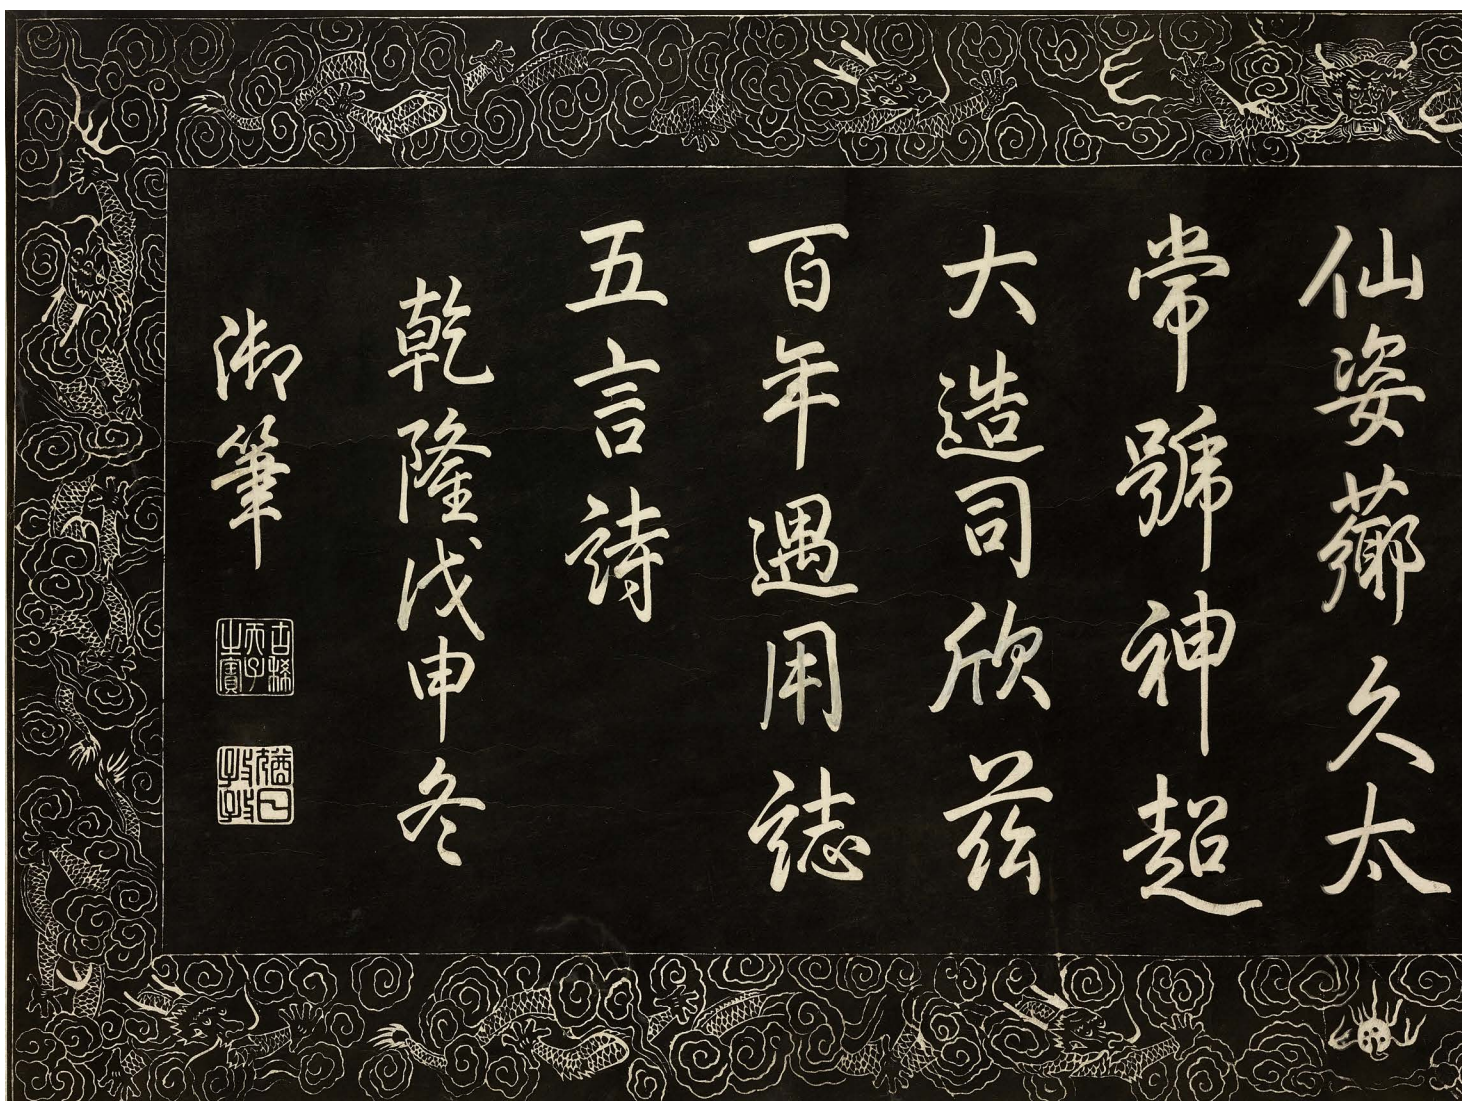 仙姿薌久太
常號神超
大造司欣茲
百年遇用誌
五言詩
乾隆戊申冬
御筆
古稀天子之寶
猶日孜孜